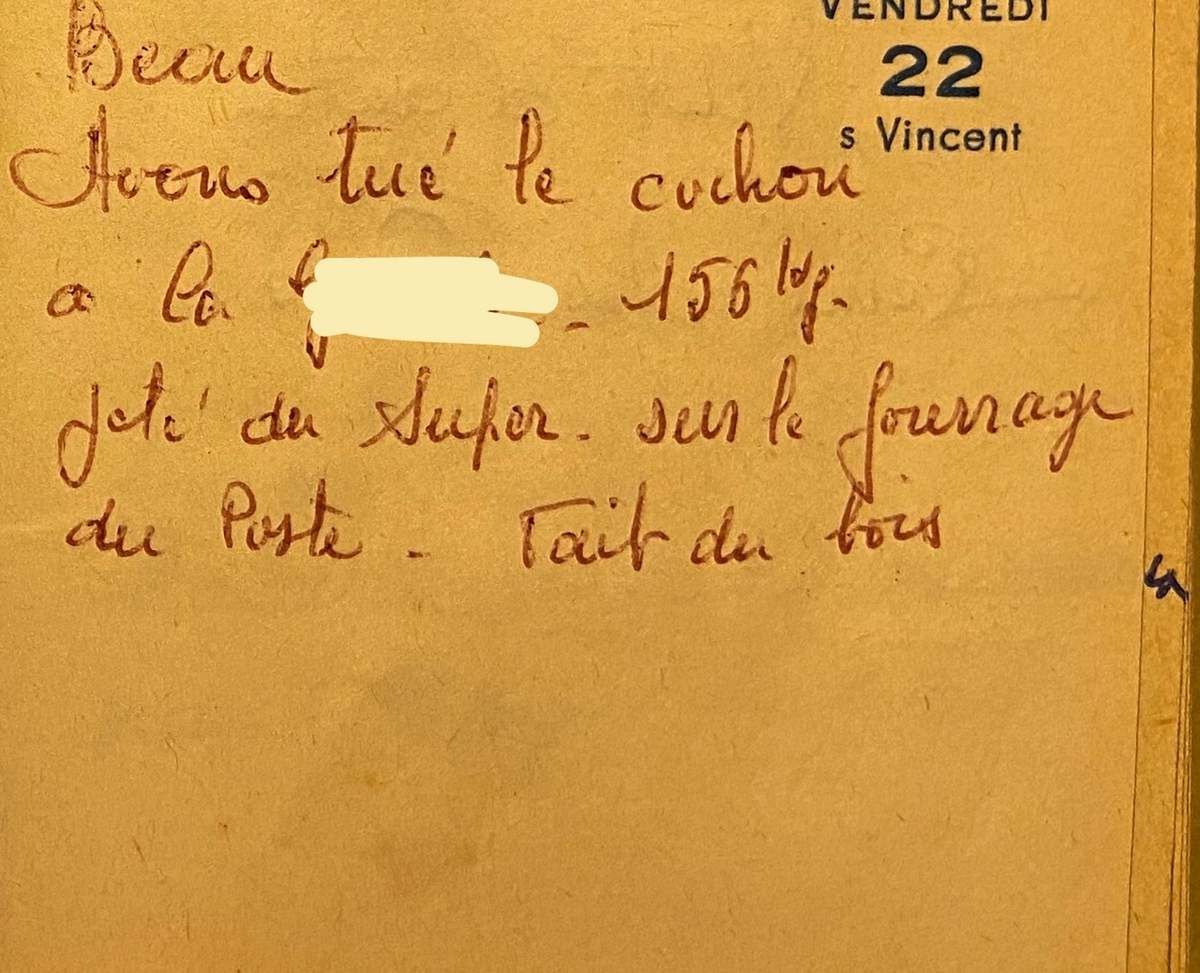 VENDREDI
22
s Vincent
Beau
Avons tué le cochon
a la - 156 kg.
jeté du Super. sur le fourrage
du Poste - Fait du bois